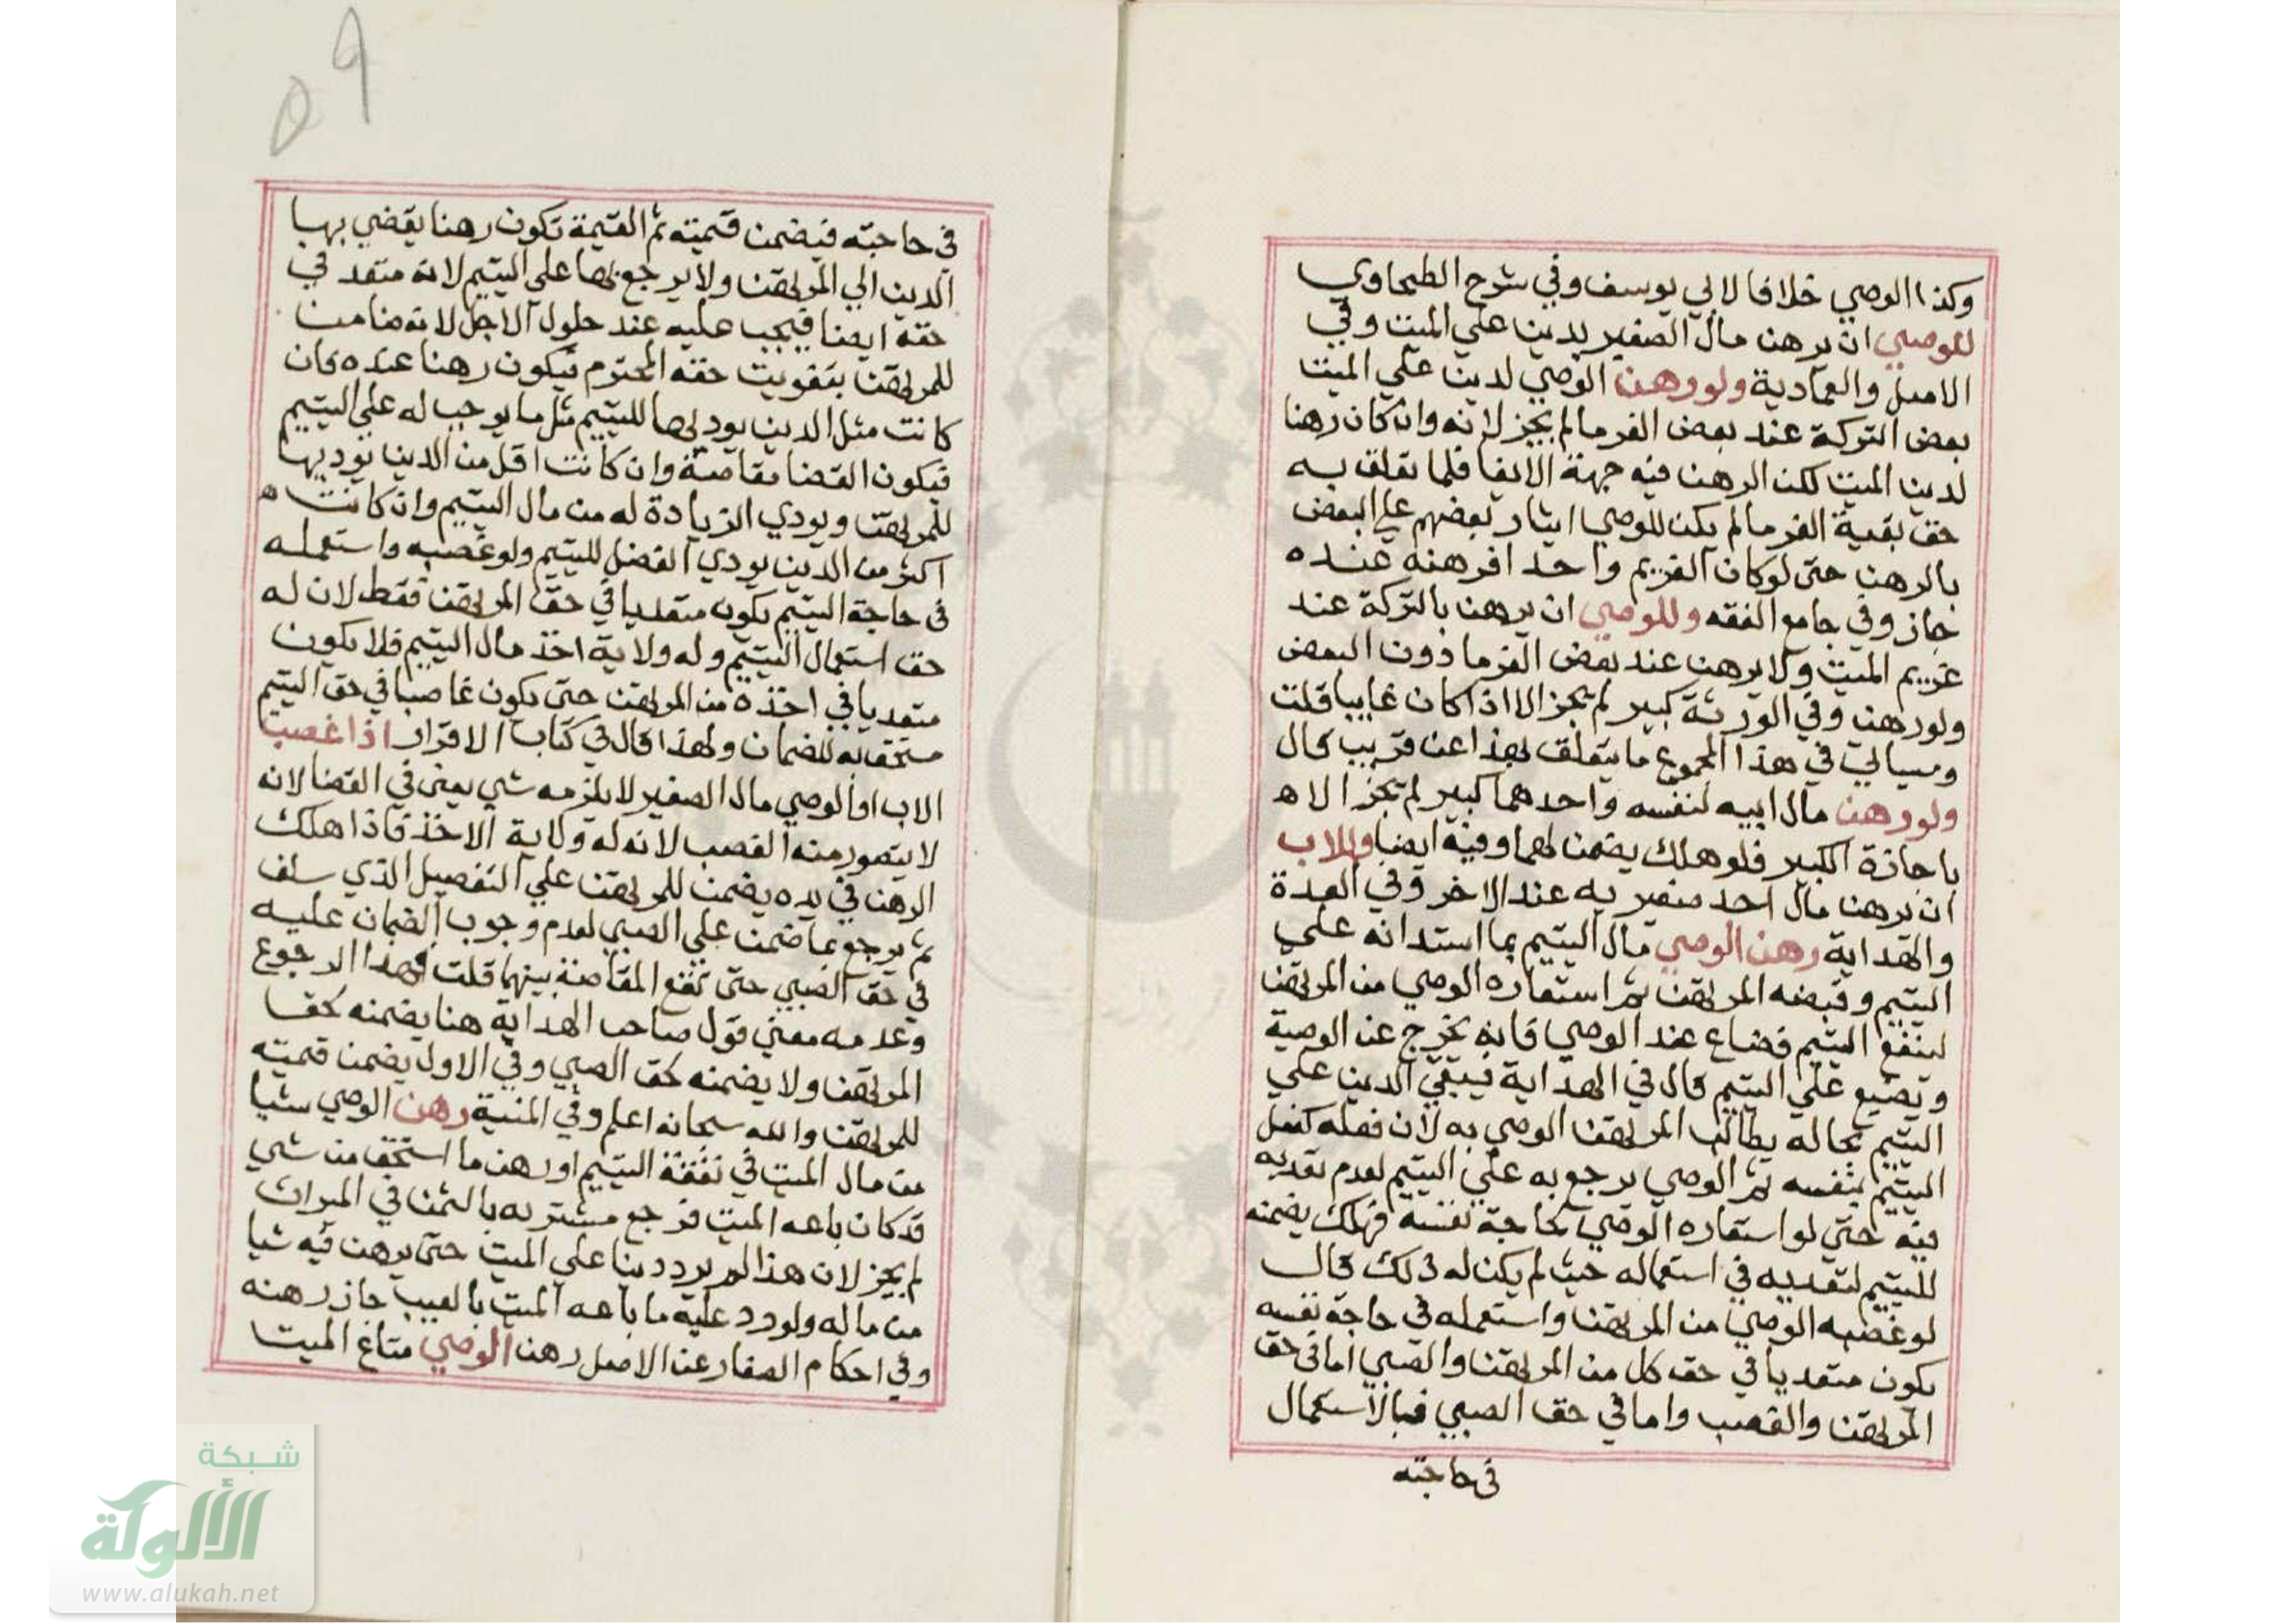 وكذا الوصي خلافا لابي يوسف وفي شرح الطحاوي
للوصي ان يرهن مال الصغير بدين علي الميت وفي
الاصل والعمادية ولو رهن الوصي لدين علي الميت
بعض التركة عند بعض الغرما لم يجز لانه وان كان رهنا
لدين الميت لكن الرهن فيه جهة الايفا فلما تعلق به
حق بقية الغرما لم يكن للوصي ايثار بعضهم علي البعض
بالرهن حتى لو كان الغريم واحد افرهنه عنده
جاز وفي جامع الفقه وللوصي ان يرهن بالتركة عند
غريم الميت ولا يرهن عند بعض الغرما دون البعض
ولو رهن وفي الورثة كبير لم يجز الا اذا كان غايبا قلت
وسيالي في هذا المجموع ما يتعلق بهذا عن قريب قال
ولو رهن مال ابيه لنفسه واحدهما كبير لم يجز الا ه
باجازة الكبير فلو هلك يضمن لهما وفيه ايضا وللاب
ان يرهن مال احد صغير يه عند الاخر وفي العدة
والهداية رهن الوصي مال اليتيم بما استدانه علي
اليتيم وقبضه المرتهن ثم استعاره الوصي من المرتهن
لينفع اليتيم فضاع عند الوصي فانه يخرج عن الوصية
ويضيع علي اليتيم قال في الهداية فيبقي الدين علي
اليتيم بحاله يطالب المرتهن الوصي به لان فعله كفعل
اليتيم بنفسه ثم الوصي يرجع به علي اليتيم لعدم تعديه
فيه حتي لو استعاره الوصي لحاجة نفسه فهلك يضمنه
لليتيم لتعديه في استعماله حيث لم يكن له ذلك قال
لو غصبه الوصي من المرتهن واستعمله في حاجة نفسه
يكون متعديا في حق كل من المرتهن والصبي اما في حق
المرتهن والغصب واما في حق الصبي فبالاستعمال
في حاجته
٥٩
في حاجته فيضمن قيمته ثم القيمة تكون رهنا يقضي بها
الدين الي المرتهن ولا يرجع بها علي اليتيم لانه متعد في
حقه ايضا فيجب عليه عند حلول الاجل لانه ضامن
للمرتهن بتفويت حقه المحترم فيكون رهنا عنده فان
كانت مثل الدين يود بها لليتيم مثل ما يوجب له علي اليتيم
فيكون القضا مقاصة وان كانت اقل من الدين يوديها
للمرتهن ويودي الزيادة له من مال اليتيم وان كانت ه
اكثر من الدين يودي الفضل لليتيم ولو غصبه واستعمله
في حاجة اليتيم يكون متعديا في حق المرتهن فقط لان له
حق استعمال اليتيم وله ولاية اخذ مال اليتيم فلا يكون
متعديا في اخذه من المرتهن حتى يكون غاصبا في حق اليتيم
مستحق به للضمان ولهذا قال في كتاب الاقرار اذا غصب
الاب او الوصي مال الصغير لا يلزمه شي يعني في القضا لانه
لا يتصور منه الغصب لانه له ولاية الاخذ فاذا هلك
الرهن في يده يضمن للمرتهن علي التفصيل الذي سلف
ثم يرجع بما ضمن علي الصبي لعدم وجوب الضمان عليه
في حق الصبي حتى تقع المقاصة بينهما قلت فهذا الرجوع
وعدمه معني قول صاحب الهداية هنا يضمنه لحق
المرتهن ولا يضمنه لحق الصبي وفي الاول يضمن قيمته
للمرتهن والله سبحانه اعلم وفي المنية رهن الوصي شيا
من مال الميت في نفقة اليتيم او رهن ما استحق من شي
قد كان باعه الميت فرجع مشتريه بالثمن في الميراث
لم يجز لان هذا لم يرد دينا علي الميت حتى يرهن فيه شيا
من ماله ولو رد عليه ما باعه الميت بالعيب جاز رهنه
وفي احكام الصغار عن الاصل رهن الوصي متاع الميت
شبكة
الألوكة
www.alukah.net